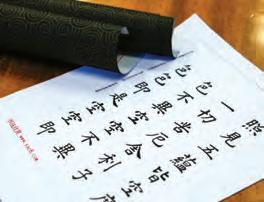 照見五蘊皆空度
一切苦厄舍利子
色不異空空不異
色即是空空即